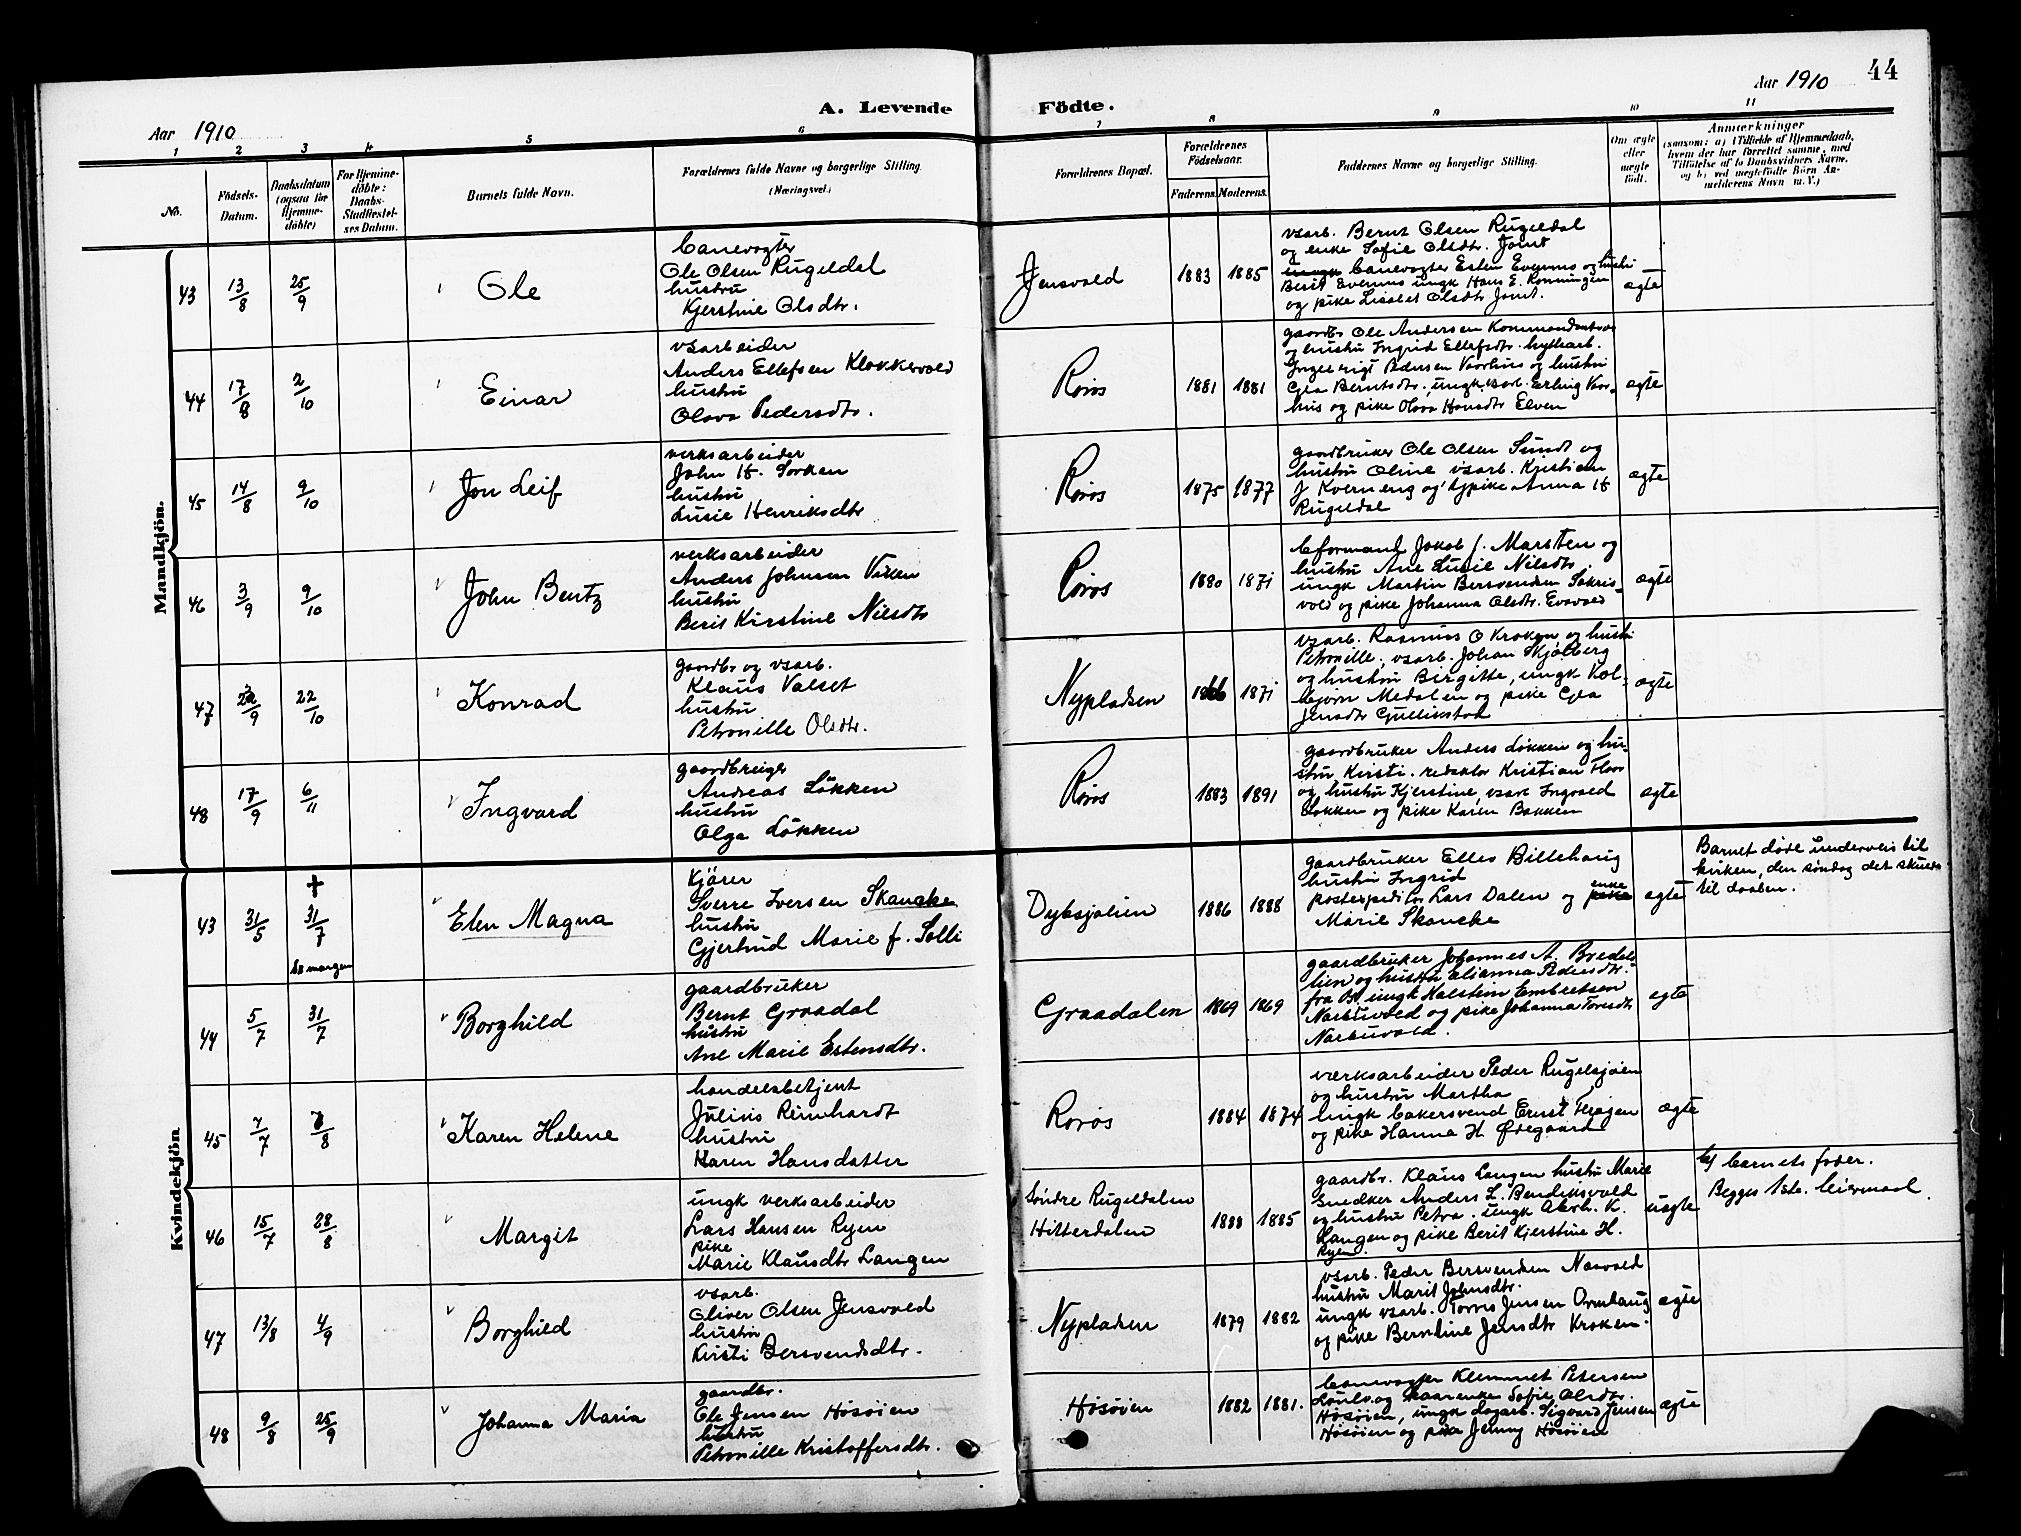 44
A. Levende Födte.
Aar 1910
Aar 1910
1 2 3 4 5 6 7 8 9 10 11
No.
Födsels-
Datum.
Daabsdatum
(ogsaa for
Hjemme-
döbte)
For Hjemme-
döbte:
Daabs-
Stadfæstel-
ses Datum.
Barnets fulde Navn.
Forældrenes fulde Navne og borgerlige Stilling
(Næringsvei.)
Forældrenes Bopæl.
Forældrenes
Födselsaar.
Faderens. Moderens.
Faddernes Navne og borgerlige Stilling.
Om ægte
eller
uægte
födt.
Anmærkninger
(saasom: a) i Tilfælde af Hjemmedaab,
hvem der har forrettet samme, med
Tilföielse af to Daabsvidners Navne.
og b) ved uægtefödte Börn An-
melderens Navn m. V.)
Mandkjön.
43 13/8 25/9 Ole
banevogter
Ole Olsen Rugeldal
hustru
Kjerstine Olsdtr.
Jensvold 1883 1885
vsarb. Bernt Olsen Rugeldal
og enke Sofie Olsdtr. Jamt
banevogter Esten Evenmo og hustru
Berit Evenmo ungk Hans E. Rønningen
og pike Lisabet Olsdtr Jamt.
ægte
44 17/8 2/10 Einar
vsarbeider
Anders Ellefsen Klokkervold
hustru
Olava Pedersdtr.
Røros 1881 1881
gaardbr Ole Andersen
og hustru Ingrid Ellefsdtr. hyttearb.
Ingebrigt Pedersen Vaarhus og hustru
Berntsdtr. ungk vsarb. Erling Vor-
hus og pike Olava Hansdtr Elven
ægte
45 14/8 9/10 Jon Leif
verksarbeider
John H. Sorken
hustru
Lusie Henriksdtr
Røros 1875 1877
gaardbruker Ole Olsen Sundt og
hustru Oline vsarb. Kristian
J Kverneng og tjpike Anna H
Rugeldal
ægte
46 3/9 9/10 John Bentz
verksarbeider
Anders Johnsen Viken
hustru
Berit Kirstine Nilsdtr
Røros 1880 1871
formand Jakob J. Marsteen og
hustru Ane Lusie Nilsdtr.
ungk Martin Bersvendsen Sakris-
vold og pike Johanna Olsdtr. Evavold
ægte
47 22/9 22/10 Konrad
gaardbr og vsarb.
Klaus Valset
hustru
Petronille Olsdtr.
Nypladsen 1866 1871
vsarb. Rasmus O Kroken og hustru
Petronille, vsarb. Johan Skjølberg
og hustru Birgitte, ungk Kol-
bjørn Medalen og pike
Jensdtr Gullikstad
ægte
48 17/9 6/11 Ingvard
gaardbruger
Andreas Løkken
hustru
Olga Løkken
Røros 1883 1891
gaardbruker Anders Løkken og hu-
stru Kirsti. redaktør Kristian Floor
og hustru Kjerstine, vsarb Ingvald
Løkken og pike Karen Bakken
ægte
Kvindekjön
43 31/5 † 31/7 Elen Magna
Kjører
Sverre Iversen Skancke
hustru
Gjertrud Marie f. Solli
Dybsjølien 1886 1888
gaardbruker Elles Billehaug
hustru Ingrid
postexpeditør Lars Dalen og enke
Marie Skancke
ægte
Barnet døde underveis til
kirken, den søndag det skulde
til daaben.
44 5/7 31/7 Borghild
gaardbruker
Bernt Graadal
hustru
Ane Marie Estensdtr.
Graadalen 1869 1869
gaardbruker Johannes A. Bredal-
lien og hustru Elianna Pedersdtr.
fra Os, ungk Halstein Embretsen
Narbuvold og pike Johanna Toresdtr
Narbuvold.
ægte
45 7/7 7/8 Karen Helene
handelsbetjent
Julius Reinhardt
hustru
Karen Hansdatter
Røros 1884 1874
værksarbeider Peder Rugelsjøen
og hustru Martha
ungk bakersvend Ernst
og pike Hanna H Ødegaard
ægte
46 15/7 28/8 Margit
ungk verksarbeider
Lars Hansen Ryen
pike
Marie Klausdtr Langen
Søndre Rugeldalen
Hitterdalen 1888 1885
gaardbr. Klaus Langen hustru Marie
Snedker Anders L. Bendiksvold
og hustru Petra. ungk Abrh. K.
Langen og pike Berit Kjerstine H.
Ryen.
uægte
b) barnets fader.
Begges 1ste. leiermaal.
47 13/8 4/9 Borghild
vsarb.
Oliver Olsen Jensvold
hustru
Kirsti Bersvendsdtr.
Nypladsen 1879 1882
vsarb. Peder Bersvendsen Næsvold
hustru Marit Johnsdtr.
ungk vsarb. Torris Jensen Overhaug
og pike Berntine Jensdtr Kroken.
ægte
48 9/8 25/9 Johanna Maria
gaardbr.
Ole Jensen Høsøien
hustru
Petronille Kristoffersdtr.
Høsøien 1882 1881.
banevogter Klemmet Petersen
og enke Sofie Olsdtr.
Høsøien, ungk dagarb. Sigvard Jensen
Høsøien og pike Jenny Høsøien
ægte